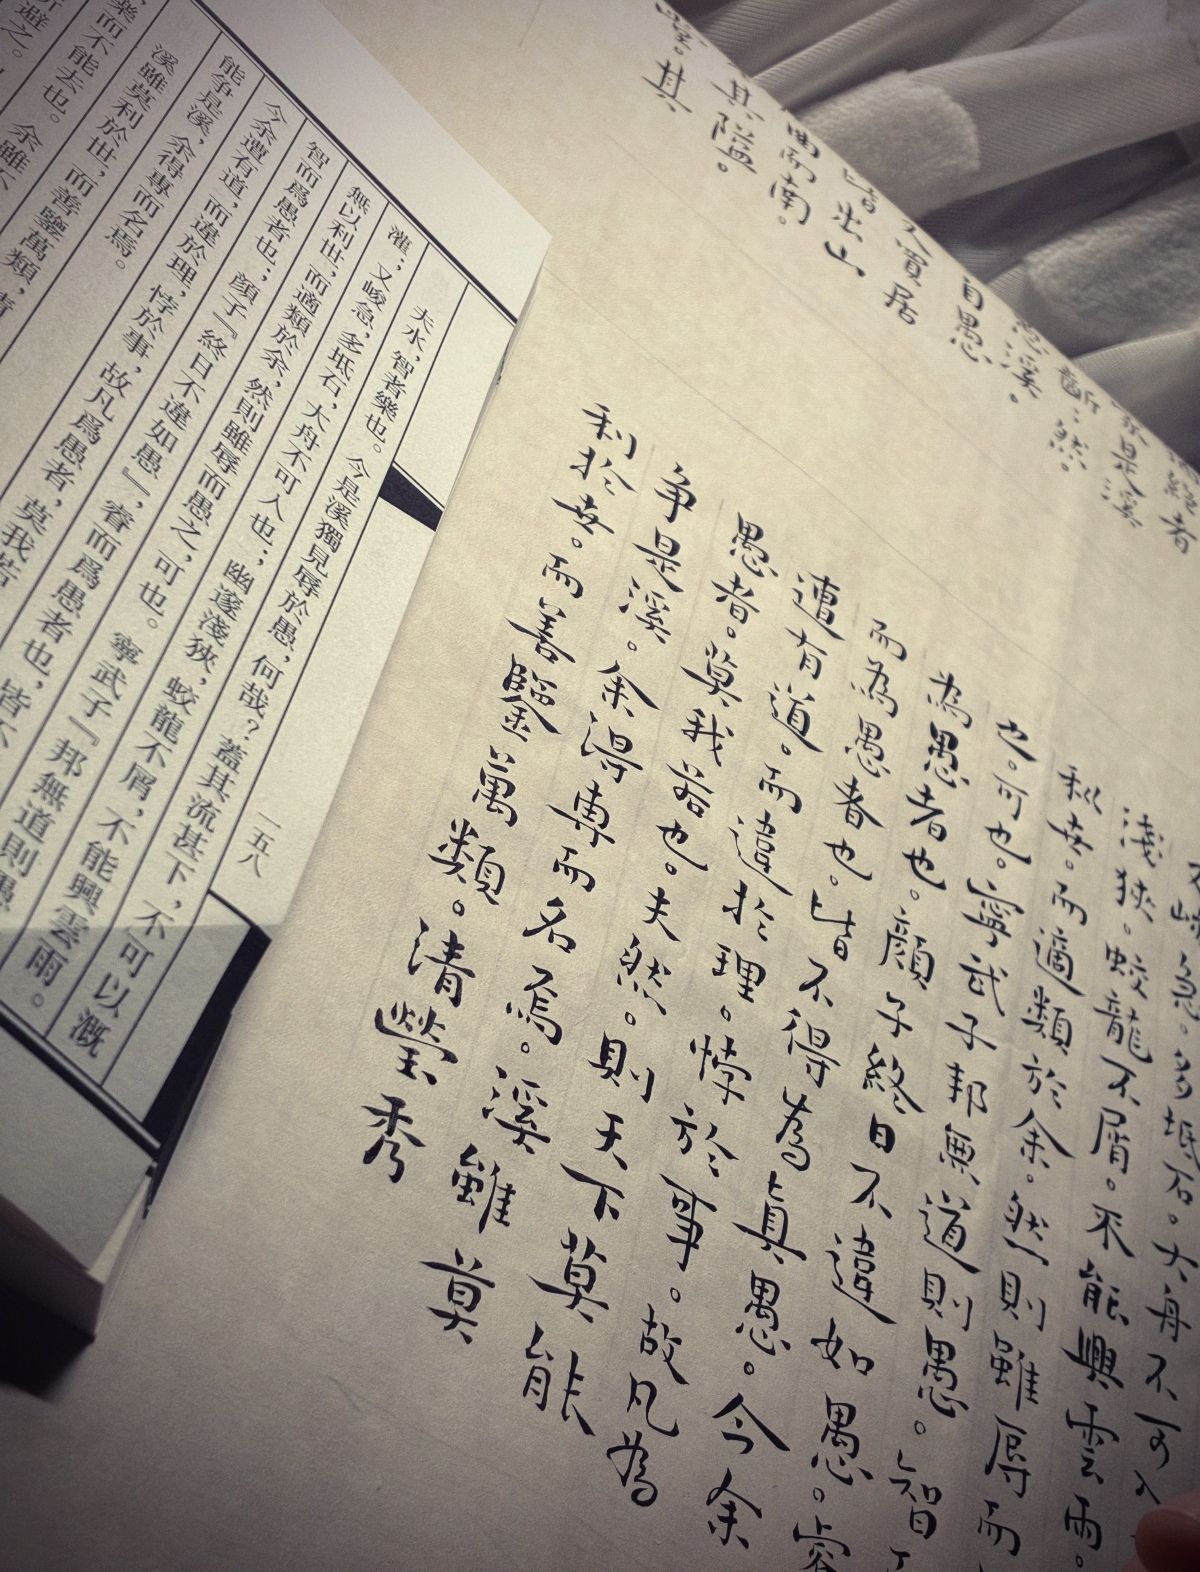 一五八
夫水，智者樂也。今是溪獨見辱於愚，何哉？蓋其流甚下，不可以溉
灌；又峻急，多坻石，大舟不可入也；幽邃淺狹，蛟龍不屑，不能興雲雨。
無以利世，而適類於余，然則雖辱而愚之，可也。寧武子『邦無道則愚
智而爲愚者也；顏子『終日不違如愚』，睿而爲愚者也，皆不
今余遭有道，而違於理，悖於事，故凡爲愚者，莫我若
能爭是溪，余得專而名焉。
溪雖莫利於世，而善鑒萬類，清
樂而不能去也。余雖不
避之。
絕者
是溪
斷斷然。
溪。
目愚
買居
皆出山
曲而南。
其隘。
其
急。多坻石。大舟不可入
淺狹。蛟龍不屑。不能興雲雨。
利世。而適類於余。然則雖辱而
也。可也。寧武子邦無道則愚。智
為愚者也。顏子終日不違如愚。睿
而為愚者也。皆不得為真愚。今余
遭有道。而違於理。悖於事。故凡為
愚者。莫我若也。夫然。則天下莫能
爭是溪。余得專而名焉。溪雖莫
利於世。而善鑒萬類。清瑩秀